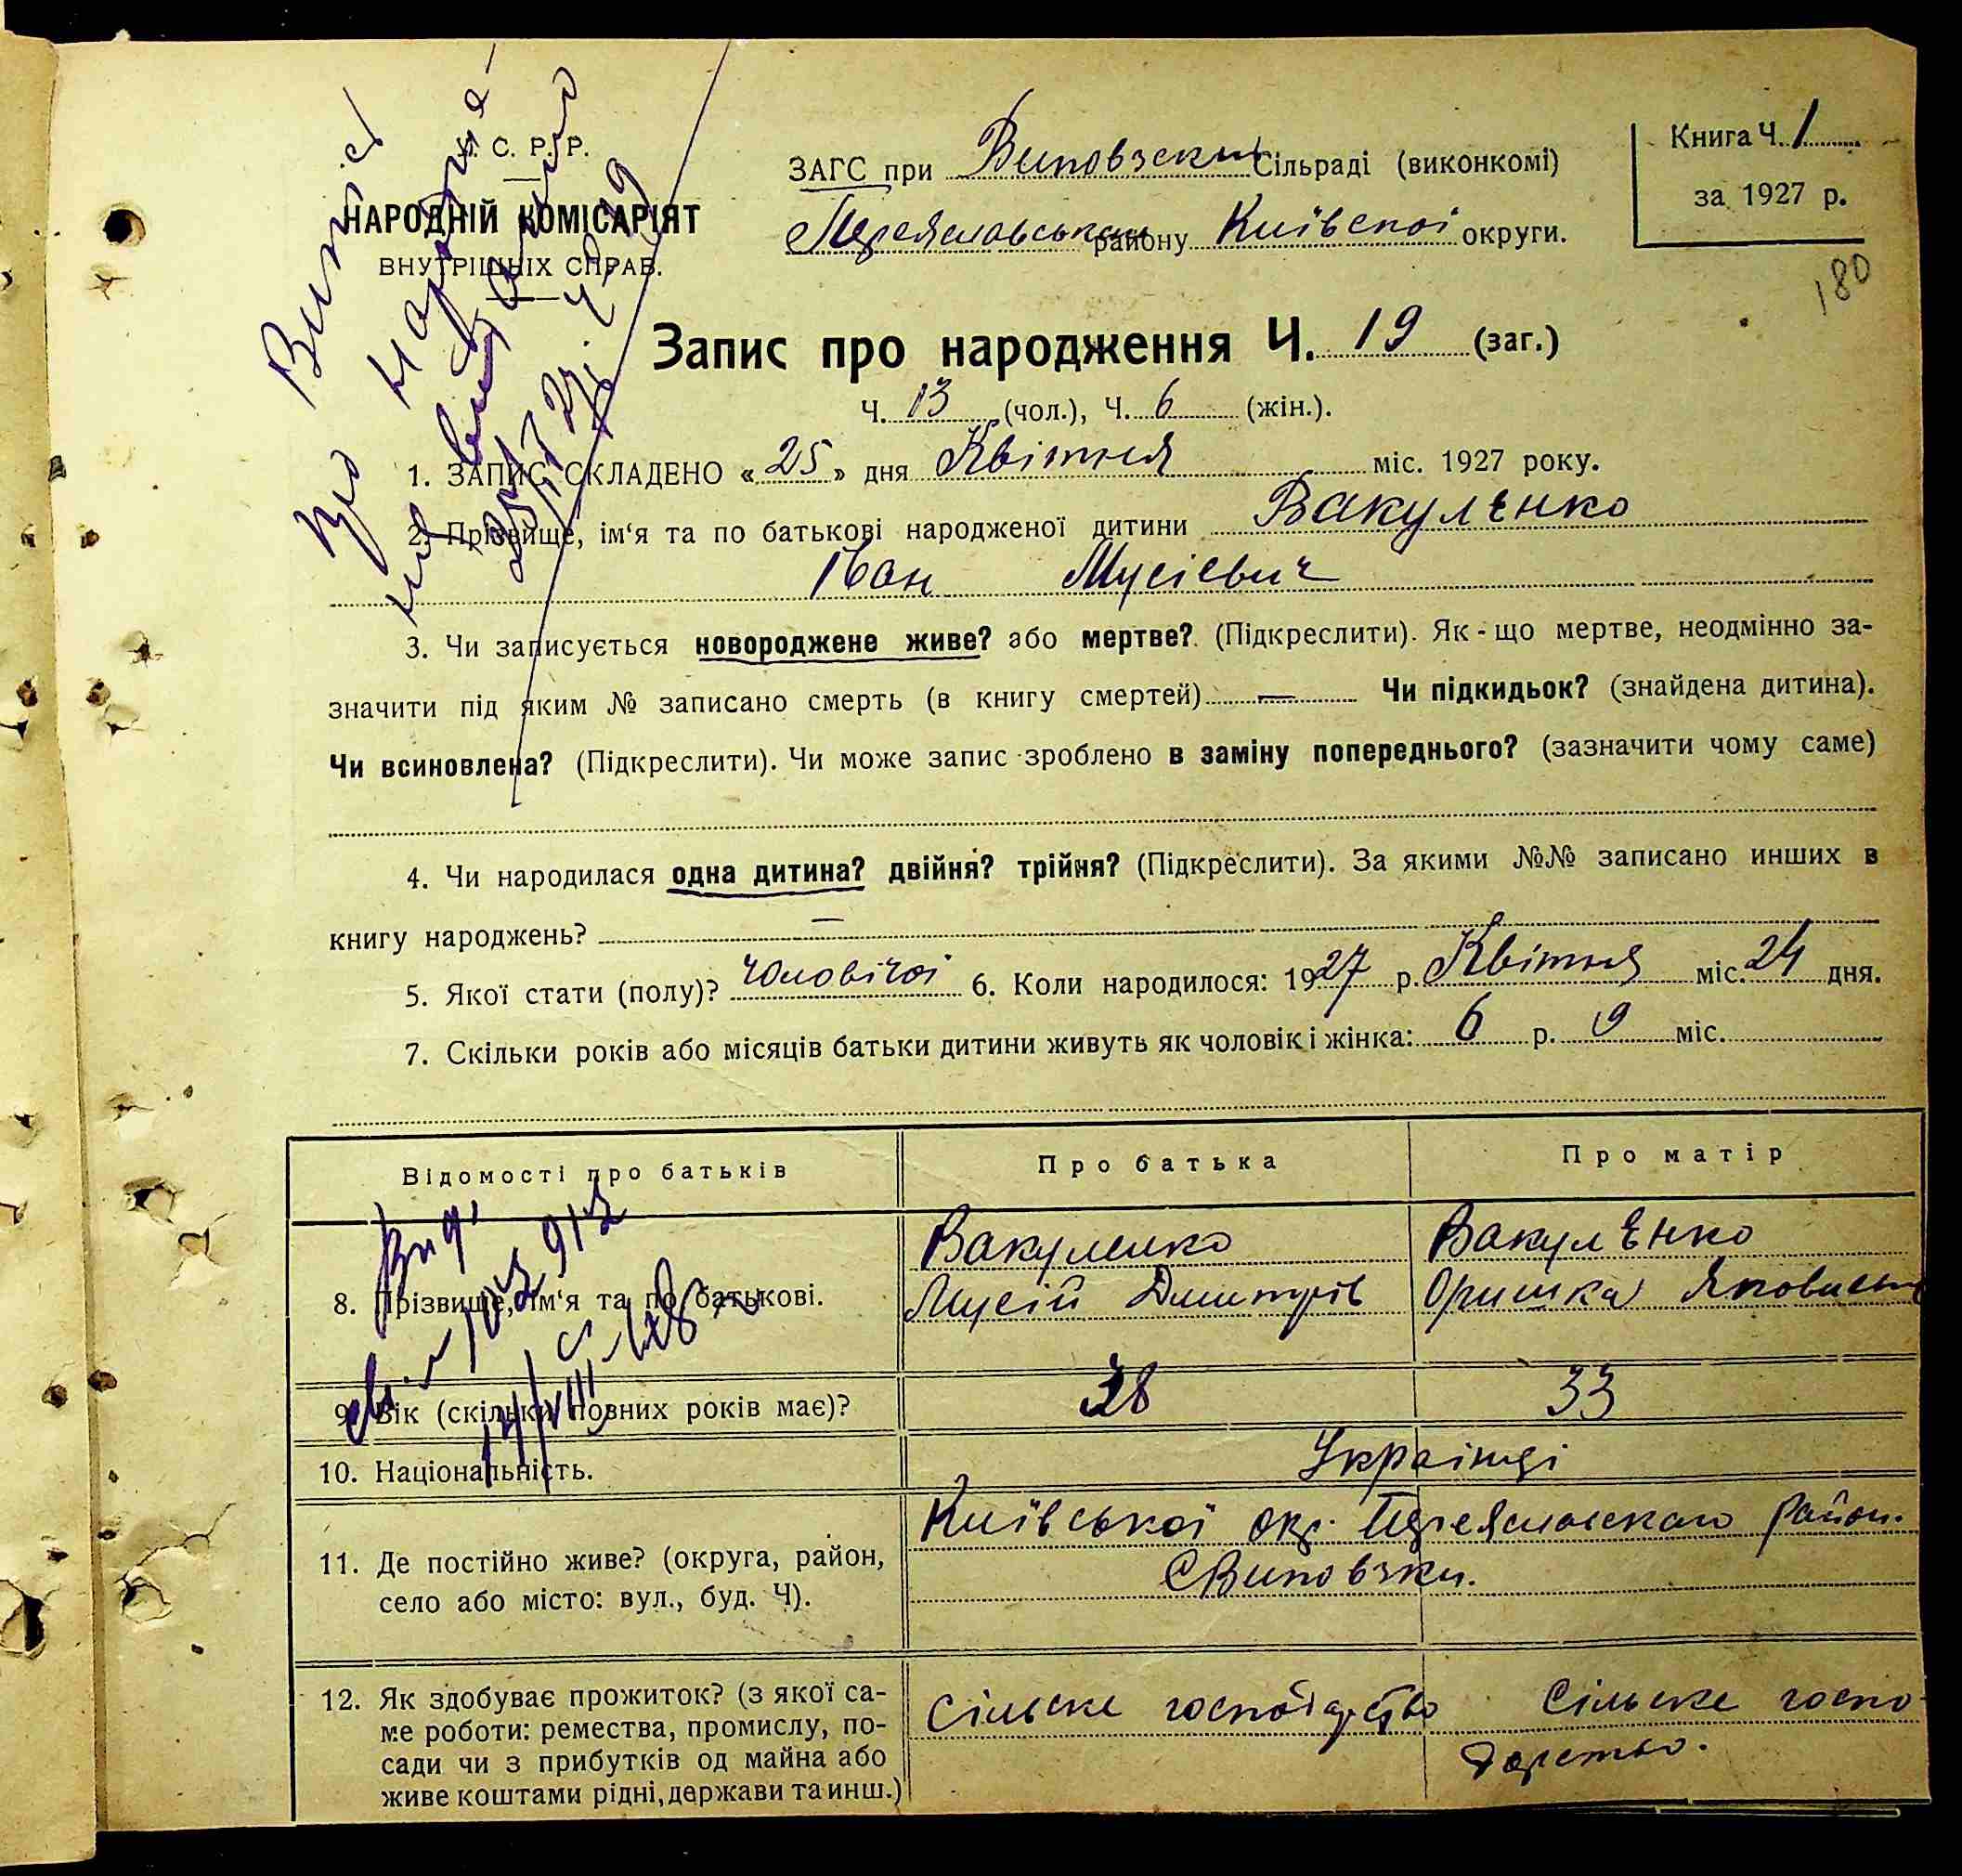 С. Р. Р.
НАРОДНІЙ КОМІСАРІЯТ
ВНУТРІШНІХ СПРАВ.
ЗАГС при Виповзскій Сільраді (виконкомі)
Переяславського району Київської округи.
Книга Ч. 1
за 1927 р.
180
Витяг
про народже-
ння видано
25/IV 27 р. Ч. 19
Запис про народження Ч. 19 (заг.)
Ч. 13 (чол.), Ч. 6 (жін.).
1. ЗАПИС СКЛАДЕНО «25» дня Квітня міс. 1927 року.
2. Прізвище, ім‘я та по батькові народженої дитини Вакуленко
Іван Мусієвич
3. Чи записується новороджене живе? або мертве? (Підкреслити). Як-що мертве, неодмінно за-
значити під яким № записано смерть (в книгу смертей) — Чи підкидьок? (знайдена дитина).
Чи всиновлена? (Підкреслити). Чи може запис зроблено в заміну попереднього? (зазначити чому саме)
4. Чи народилася одна дитина? двійня? трійня? (Підкреслити). За якими №№ записано инших в
книгу народжень? —
5. Якої стати (полу)? Чоловічої 6. Коли народилося: 1927 р. Квітня міс. 24 дня.
7. Скільки років або місяців батьки дитини живуть як чоловік і жінка: 6 р. 9 міс.
Відомості про батьків Про батька Про матір
8. Прізвище, ім‘я та по батькові. Вакуленко Вакуленко
Мусій Дмитрів Оришка Яковлевн
9. Вік (скільки повних років має)? 38 33
10. Національність. Українці
11. Де постійно живе? (округа, район,
село або місто: вул., буд. Ч). Київської окр. Переяславскаго район.
С Виповзки.
12. Як здобуває прожиток? (з якої са-
ме роботи: ремества, промислу, по-
сади чи з прибутків од майна або
живе коштами рідні, держави та инш.)
Сільске господарство Сільске госпо-
дарство.